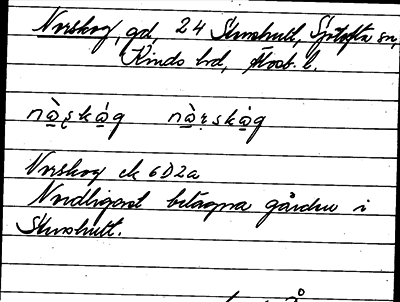 Norskog, gd, 24 Stenshult, Sjötofta sn,
Kinds hd, Älvsb. l.
nàskȧg nàrskȧg
Norskog ek 6D2a
Nordligast belägna gården i
Stenshult.